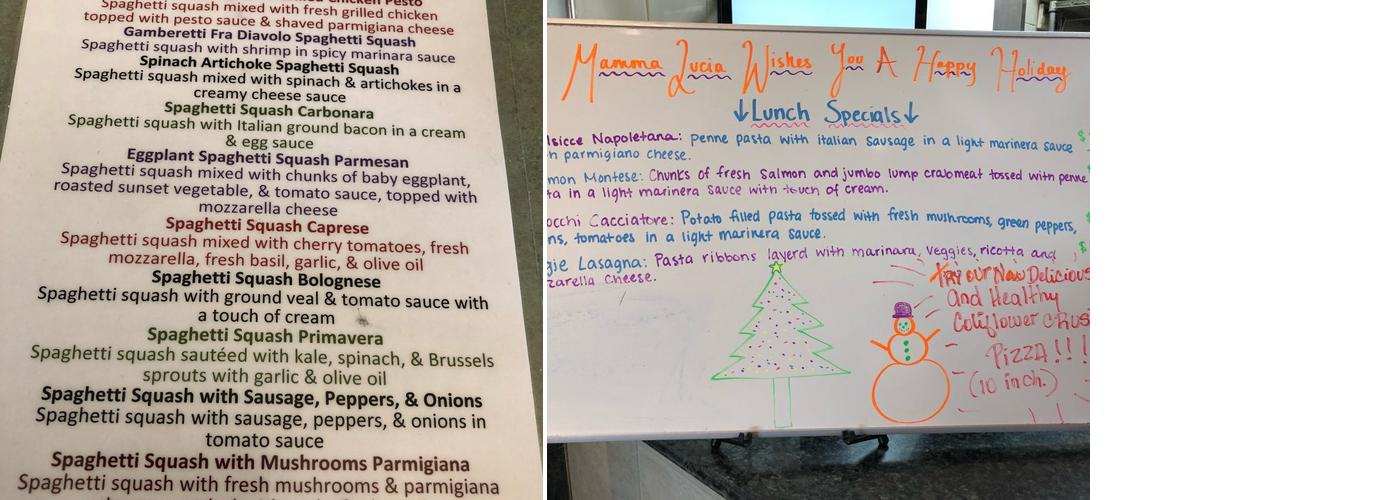 Chicken Pesto
Spaghetti squash mixed with fresh grilled chicken
topped with pesto sauce & shaved parmigiana cheese
Gamberetti Fra Diavolo Spaghetti Squash
Spaghetti squash with shrimp in spicy marinara sauce
Spinach Artichoke Spaghetti Squash
Spaghetti squash mixed with spinach & artichokes in a
creamy cheese sauce
Spaghetti Squash Carbonara
Spaghetti squash with Italian ground bacon in a cream
& egg sauce
Eggplant Spaghetti Squash Parmesan
Spaghetti squash mixed with chunks of baby eggplant,
roasted sunset vegetable, & tomato sauce, topped with
mozzarella cheese
Spaghetti Squash Caprese
Spaghetti squash mixed with cherry tomatoes, fresh
mozzarella, fresh basil, garlic, & olive oil
Spaghetti Squash Bolognese
Spaghetti squash with ground veal & tomato sauce with
a touch of cream
Spaghetti Squash Primavera
Spaghetti squash sautéed with kale, spinach, & Brussels
sprouts with garlic & olive oil
Spaghetti Squash with Sausage, Peppers, & Onions
Spaghetti squash with sausage, peppers, & onions in
tomato sauce
Spaghetti Squash with Mushrooms Parmigiana
Spaghetti squash with fresh mushrooms & parmigiana
Mamma Lucia Wishes You A Happy Holiday
↓Lunch Specials↓
lsicce Napoletana: penne pasta with italian sausage in a light marinera sauce $
h parmigiano cheese.
mon Montese: Chunks of fresh Salmon and jumbo lump crabmeat tossed with penne
ta in a light marinera sauce with touch of cream.
occhi Cacciatore: Potato filled pasta tossed with fresh mushrooms, green peppers,
ns, tomatoes in a light marinera sauce.
gie Lasagna: Pasta ribbons layerd with marinara, veggies, ricotta and $
zarella cheese.
Try our New Delicious
and Healthy
Coliflower crus
Pizza!!!
(10 inch.)